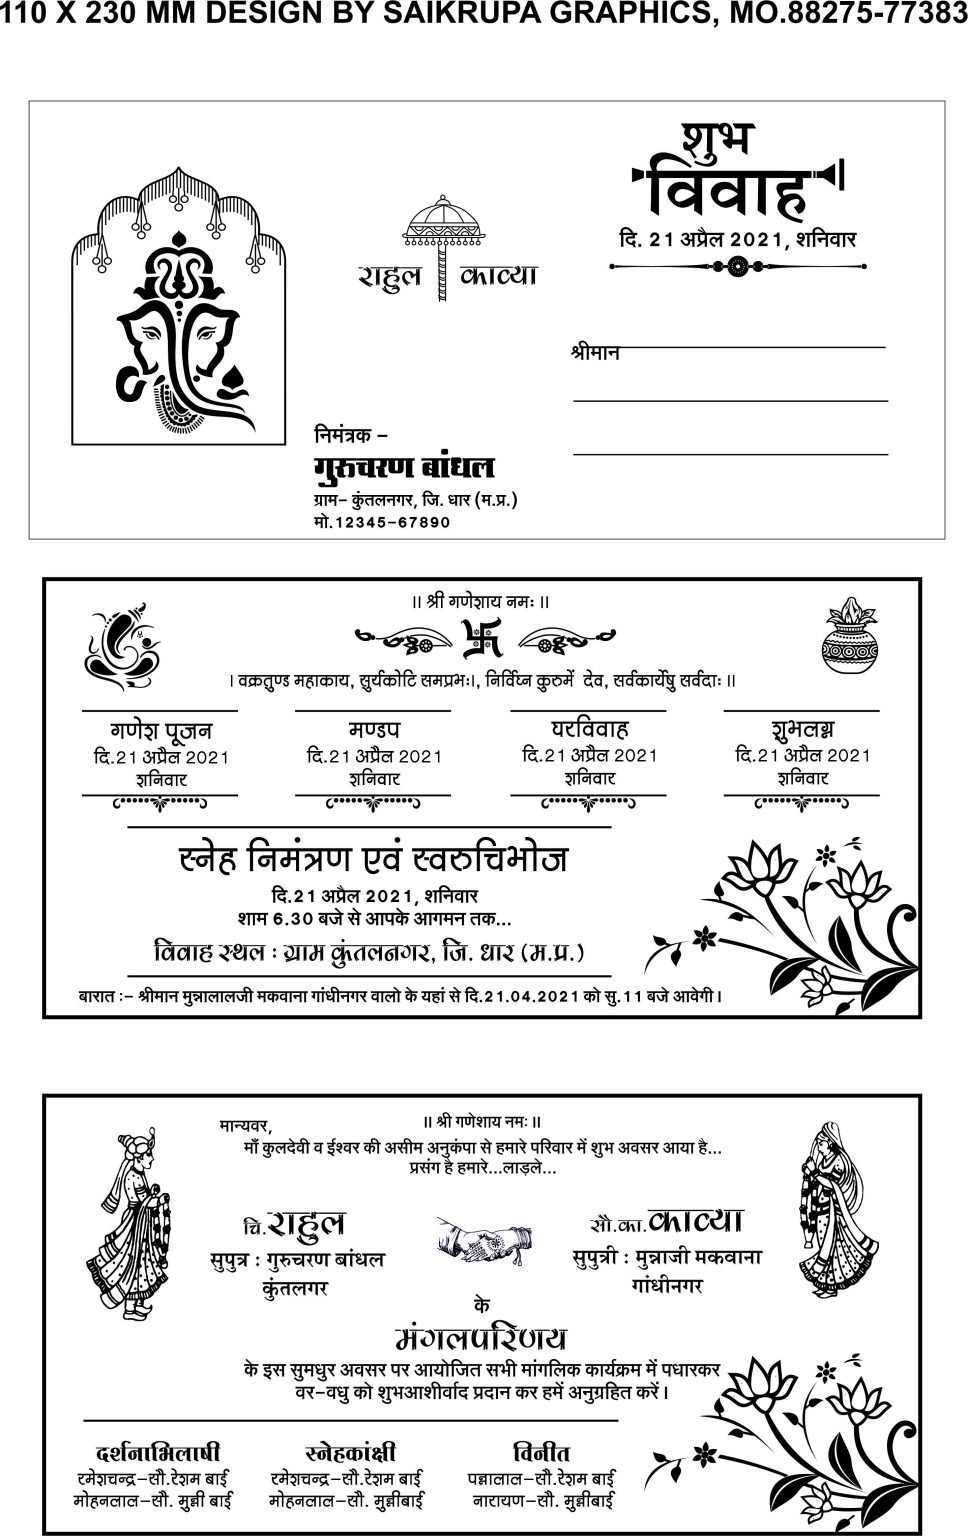 110 X 230 MM DESIGN BY SAIKRUPA GRAPHICS, MO.88275-77383
शुभ
विवाह
दि. 21 अप्रैल 2021, शनिवार
राहुल काव्या
श्रीमान
निमंत्रक -
गुरुचरण बांधल
ग्राम- कुंतलनगर, जि. धार (म.प्र.)
मो.12345-67890
।। श्री गणेशाय नमः ।।
। वक्रतुण्ड महाकाय, सुर्यकोटि समप्रभः।, निर्विघ्न कुरुमें देव, सर्वकार्येषु सर्वदाः ।।
गणेश पूजन मण्डप घरविवाह शुभलग्न
दि.21 अप्रैल 2021 दि.21 अप्रैल 2021 दि.21 अप्रैल 2021 दि.21 अप्रैल 2021
शनिवार शनिवार शनिवार शनिवार
स्नेह निमंत्रण एवं स्वरुचिभोज
दि.21 अप्रैल 2021, शनिवार
शाम 6.30 बजे से आपके आगमन तक...
विवाह स्थल : ग्राम कुंतलनगर, जि. धार (म.प्र.)
बारात :- श्रीमान मुन्नालालजी मकवाना गांधीनगर वालो के यहां से दि.21.04.2021 को सु.11 बजे आवेगी।
।। श्री गणेशाय नमः ।।
मान्यवर,
माँ कुलदेवी व ईश्वर की असीम अनुकंपा से हमारे परिवार में शुभ अवसर आया है...
प्रसंग है हमारे...लाड़ले...
चि.राहुल सौ.का.काव्या
सुपुत्र : गुरुचरण बांधल सुपुत्री : मुन्नाजी मकवाना
कुंतलगर गांधीनगर
के
मंगलपरिणय
के इस सुमधुर अवसर पर आयोजित सभी मांगलिक कार्यक्रम में पधारकर
वर-वधु को शुभआशीर्वाद प्रदान कर हमें अनुग्रहित करें।
दर्शनाभिलाषी स्नेहकांक्षी विनीत
रमेशचन्द्र-सौ.रेशम बाई रमेशचन्द्र-सौ.रेशम बाई पन्नालाल-सौ.रेशम बाई
मोहनलाल-सौ. मुन्नी बाई मोहनलाल-सौ. मुन्नीबाई नारायण-सौ. मुन्नीबाई